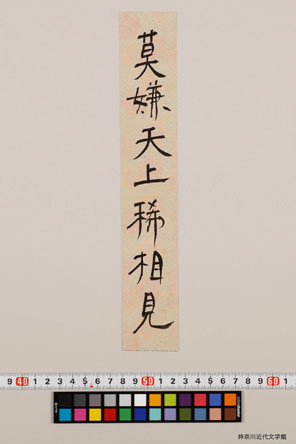 莫嫌天上稀相見
9 40 1 2 3 4 5 6 7 8 9 50 1 2 3 4 5 6 7 8 9 60 1
神奈川近代文学館